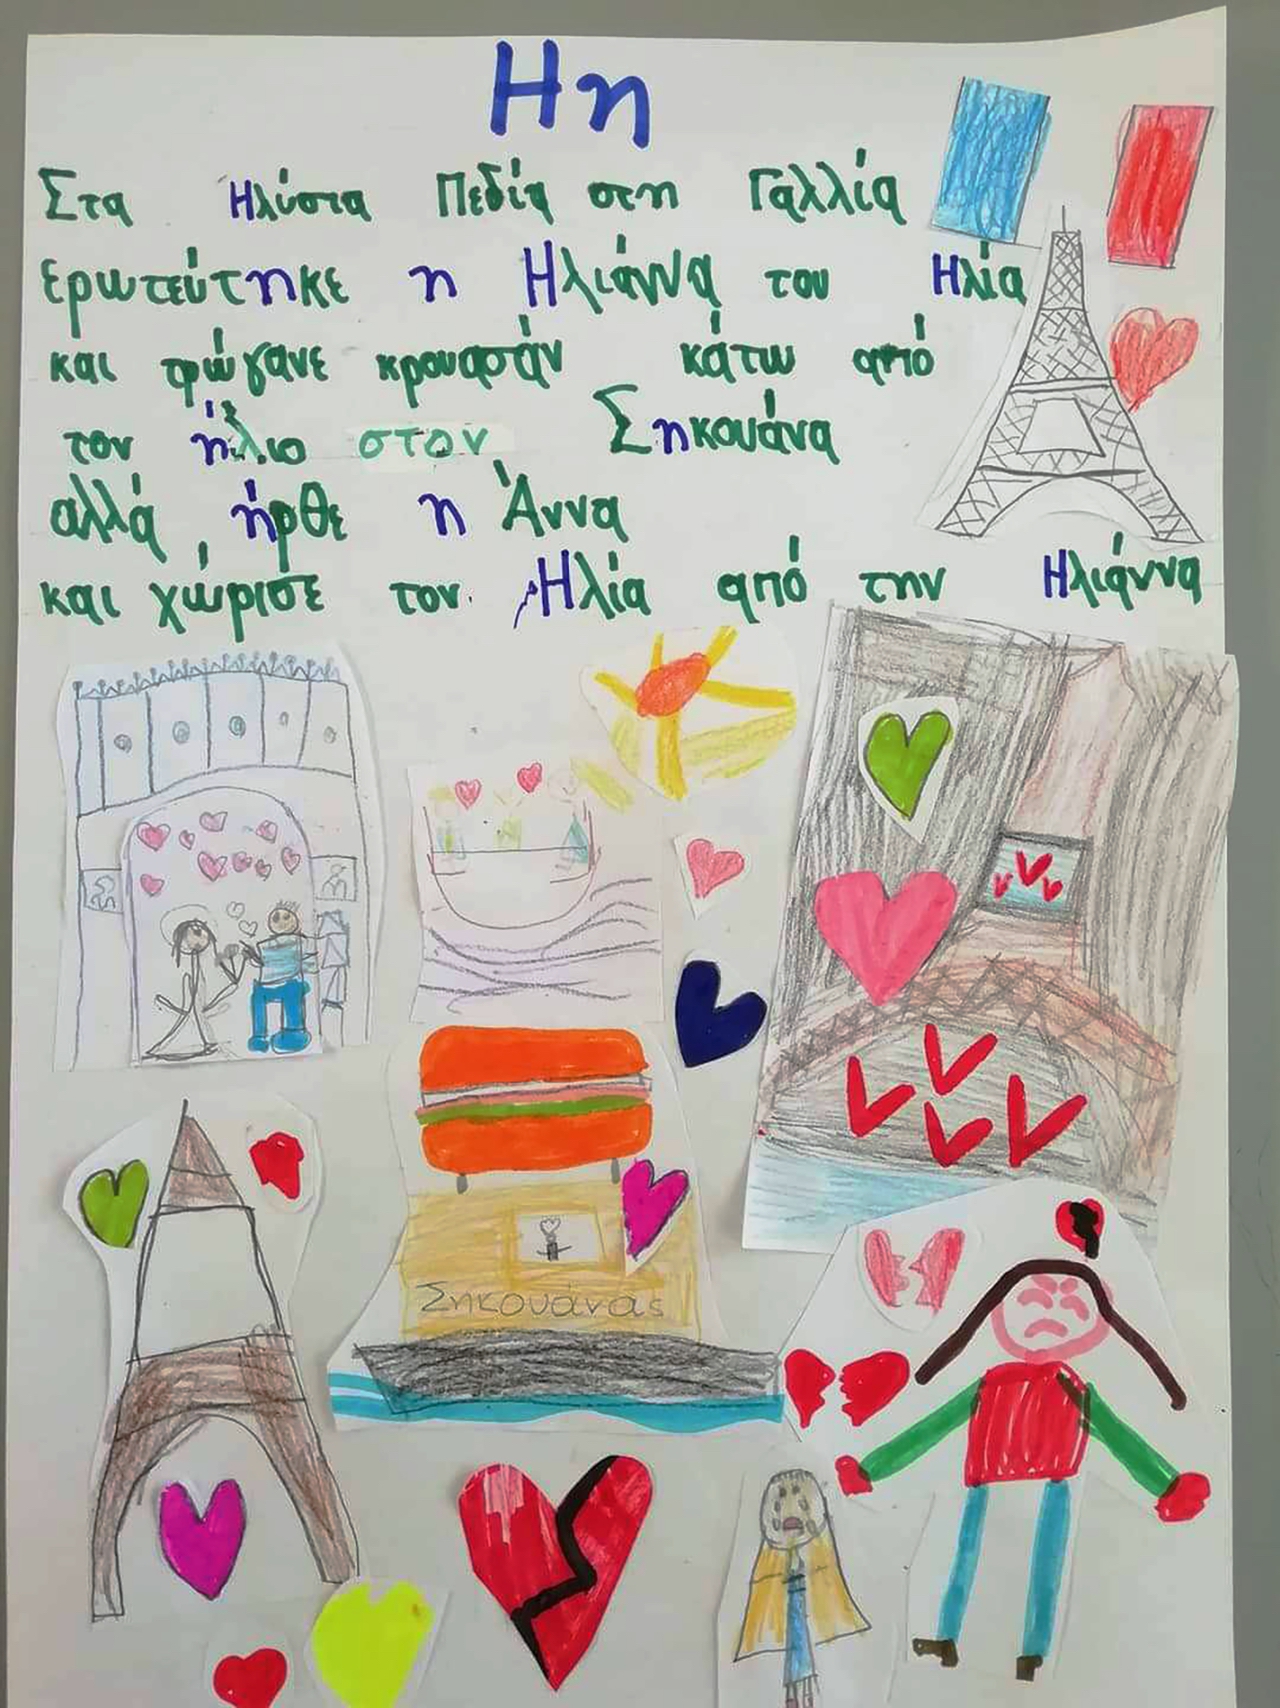 Ηη
Στα Ηλύσια Πεδία στη Γαλλία
ερωτεύτηκε η Ηλιάννα τον Ηλία
και τρώγανε κρουασάν κάτω από
τον ήλιο στον Σηκουάνα
αλλά ήρθε η Άννα
και χώρισε τον Ηλία από την Ηλιάννα
Σηκουάνας